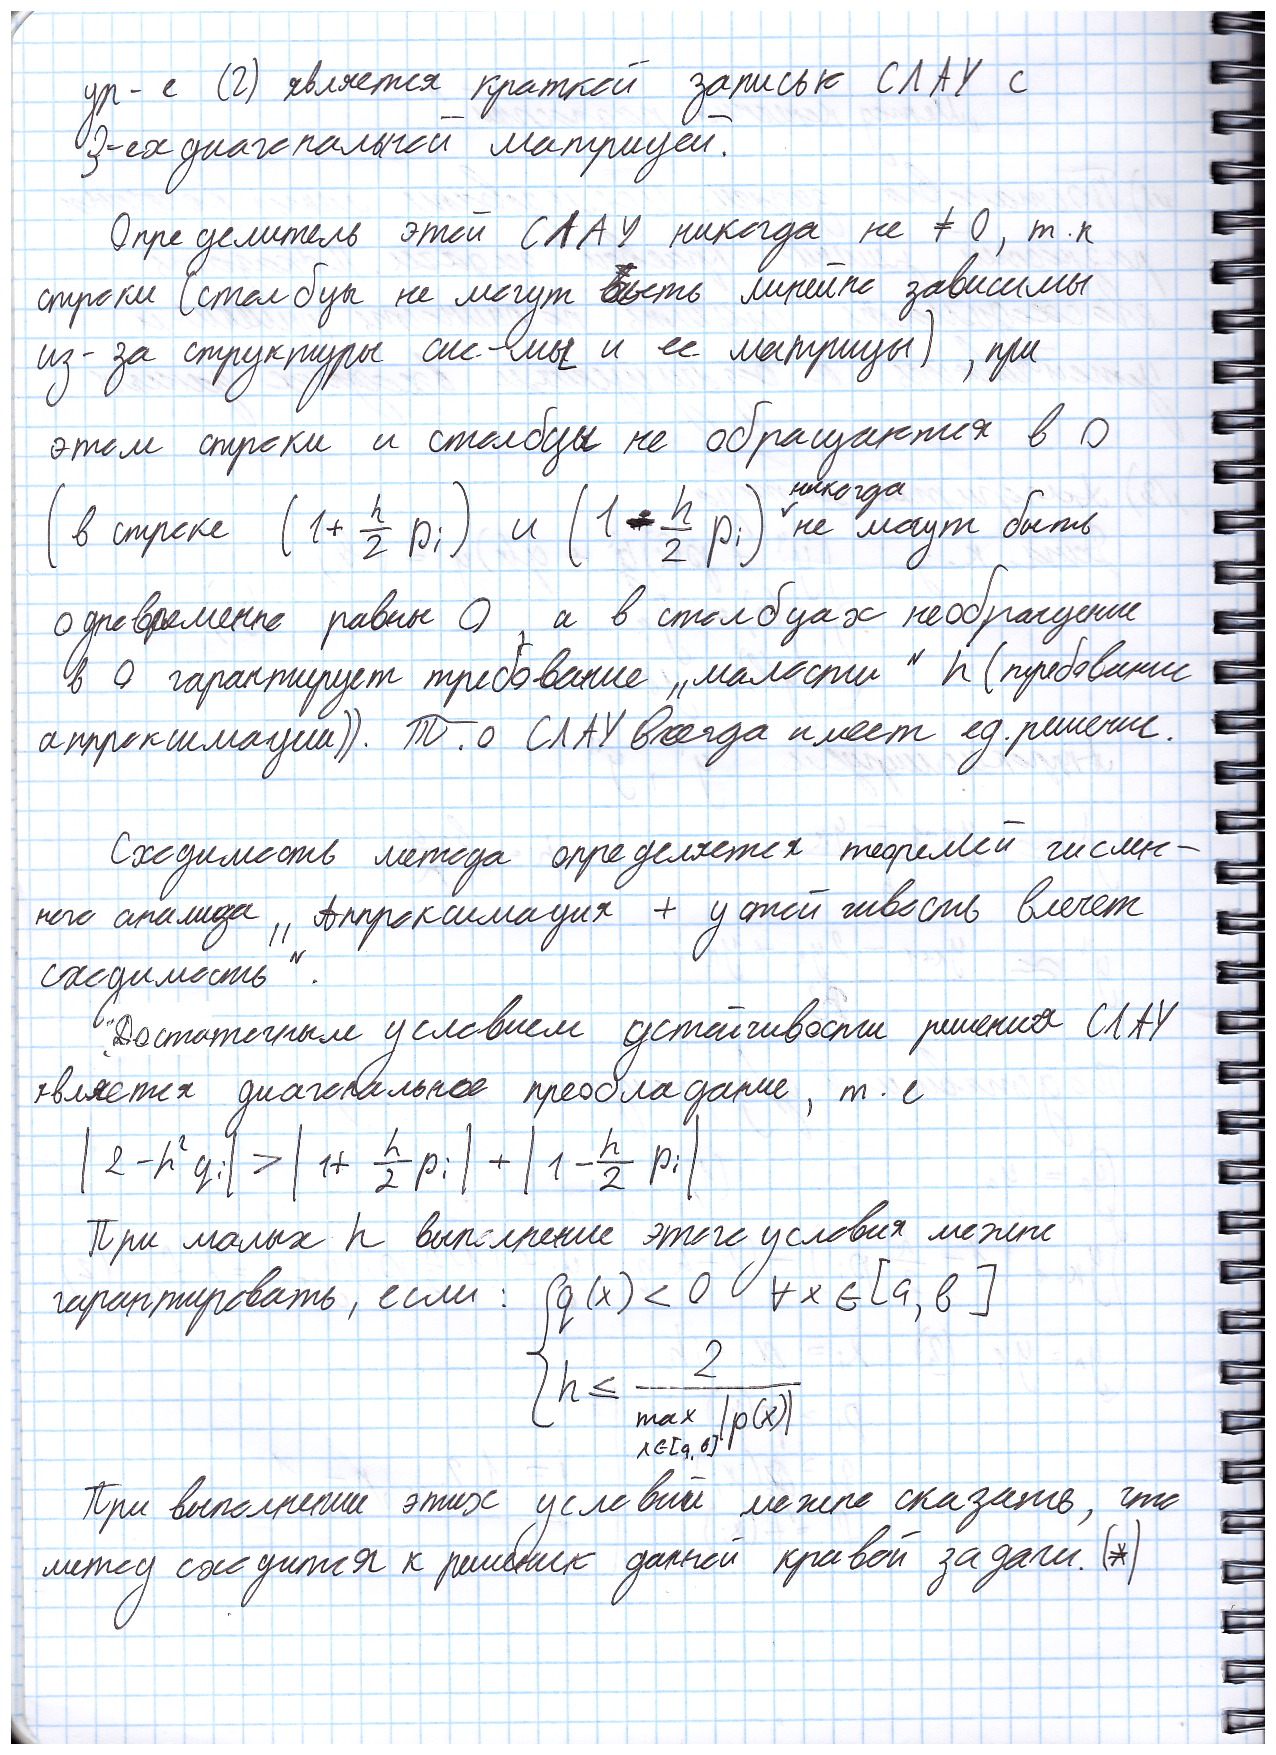 ур-е (2) является краткой записью СЛАУ с
3-ех диагональной матрицей.
Определитель этой СЛАУ никогда не ≠ 0, т.к
строки (столбцы не могут быть линейно зависимы
из-за структуры сис-мы и ее матрицы), при
этом строки и столбцы не обращаются в 0
(в строке (1 + h/2 pᵢ) и (1 - h/2 pᵢ) никогда не могут быть
одновременно равны 0, а в столбцах необращение
в 0 гарантирует требование „малости" h (требование
аппроксимации)). Т.о СЛАУ всегда имеет ед. решение.
Сходимость метода определяется теоремой числен-
ного анализа „Аппроксимация + устойчивость влечет
сходимость".
Достаточным условием устойчивости решения СЛАУ
является диагональное преобладание, т.е
|2 - h² qᵢ| > |1 + h/2 pᵢ| + |1 - h/2 pᵢ|
При малых h выполнение этого условия можно
гарантировать, если: { q(x) < 0 ∀x ∈ [a, b]
h ≤ 2 / max x∈[a, b] |p(x)|
При выполнении этих условий можно сказать, что
метод сходится к решению данной краевой задачи. (*)